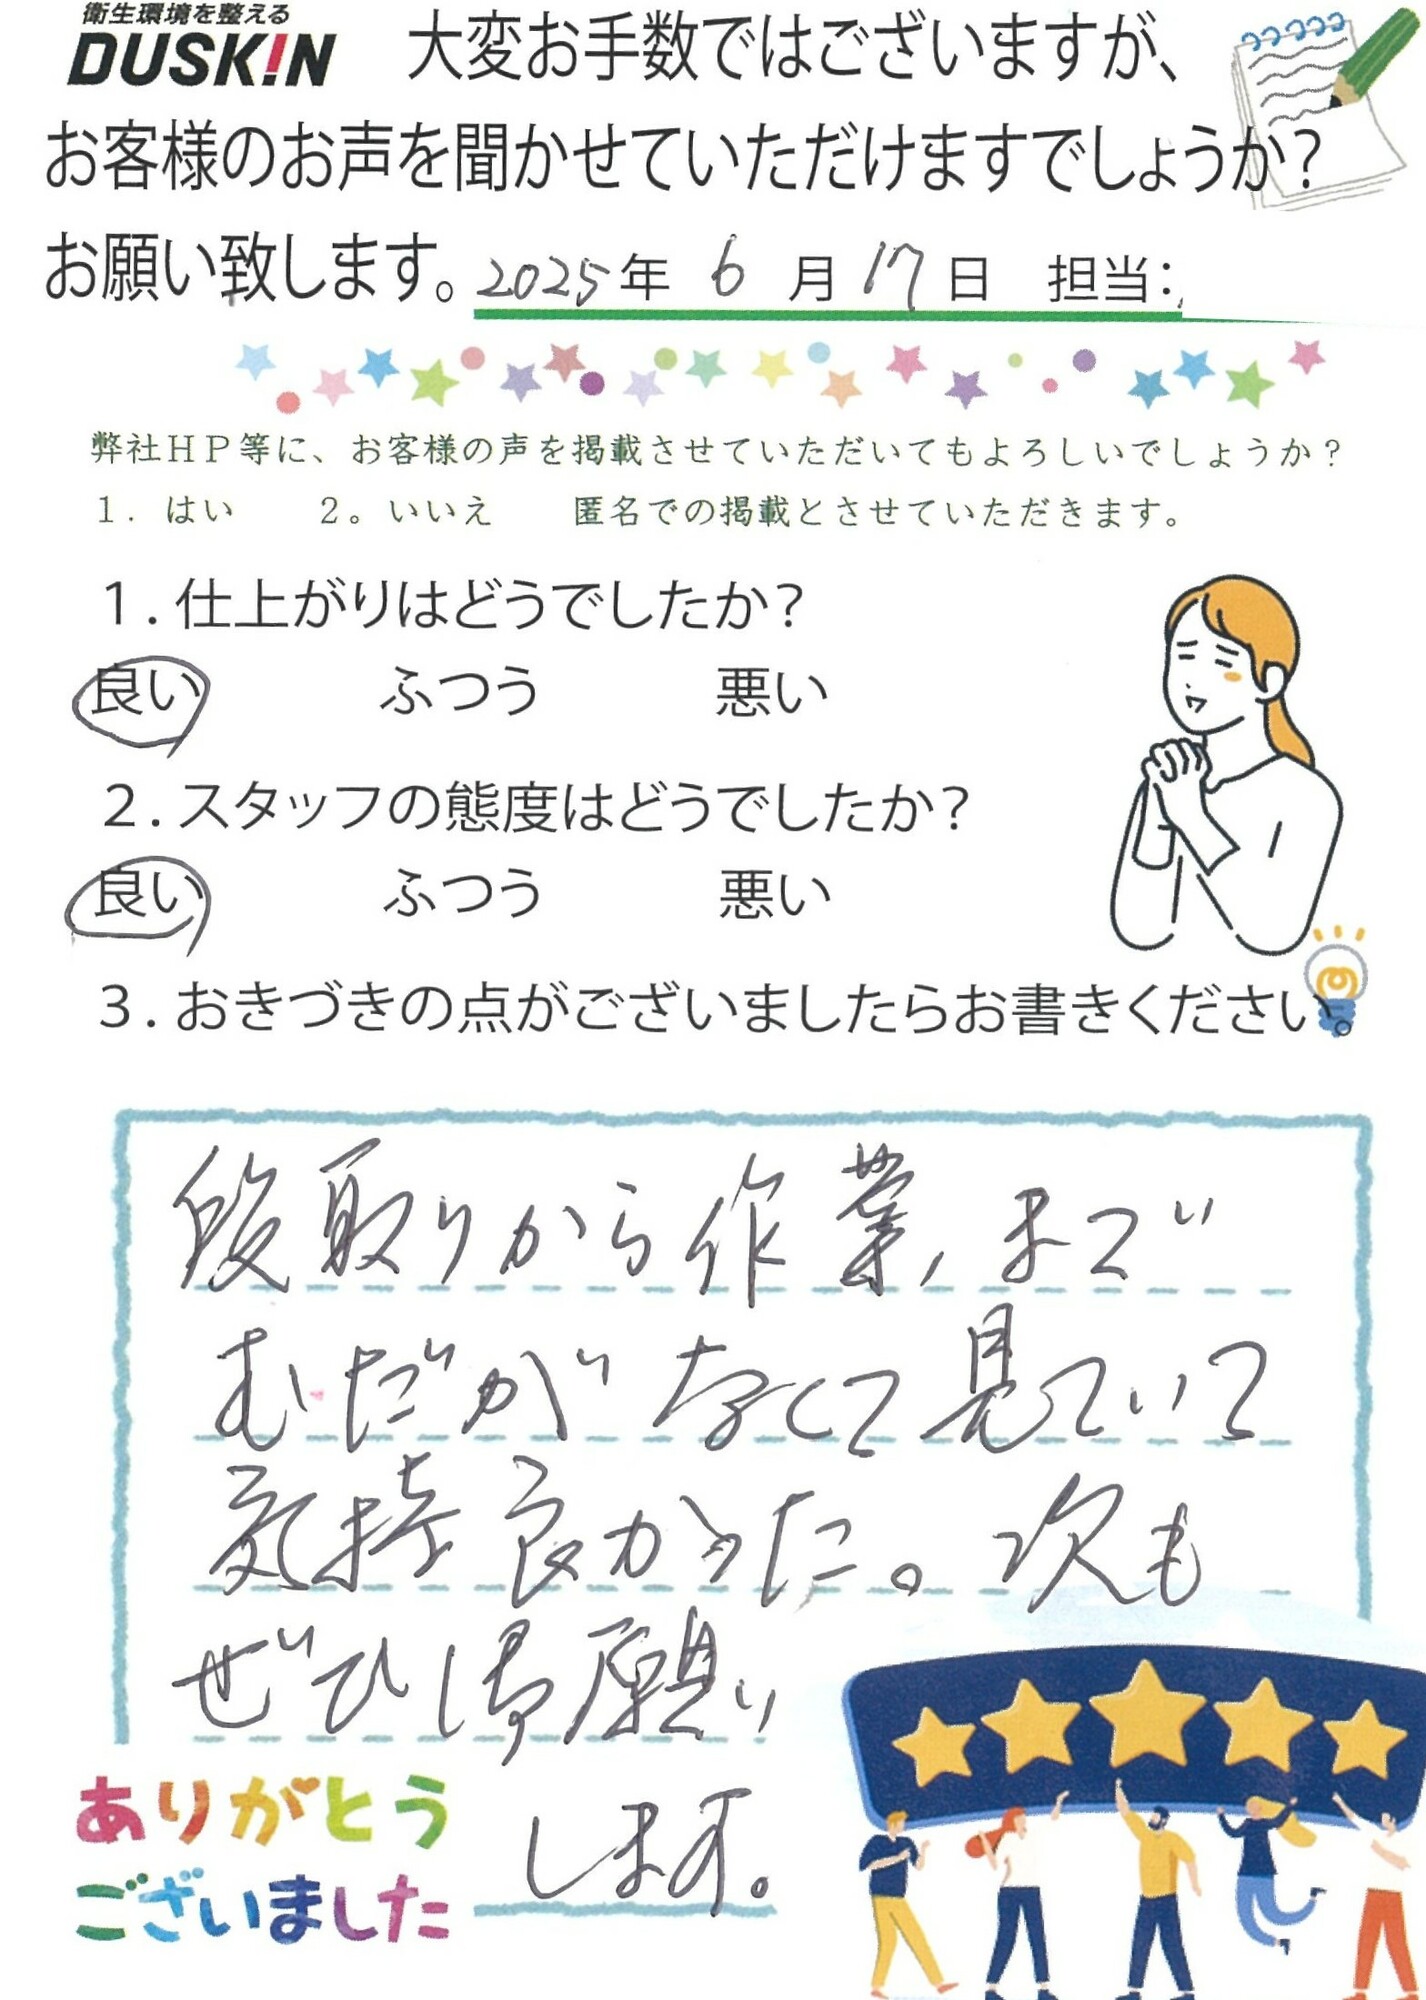 衛生環境を整える
DUSKIN
大変お手数ではございますが、
お客様のお声を聞かせていただけますでしょうか？
お願い致します。2025年 6 月 17 日 担当：
弊社ＨＰ等に、お客様の声を掲載させていただいてもよろしいでしょうか？
１．はい ２。いいえ 匿名での掲載とさせていただきます。
１．仕上がりはどうでしたか？
良い ふつう 悪い
２．スタッフの態度はどうでしたか？
良い ふつう 悪い
３．おきづきの点がございましたらお書きください。
段取りから作業、まで
むだがなくて見ていて
気持良かった。次も
ぜひ御願い
します。
ありがとう
ございました